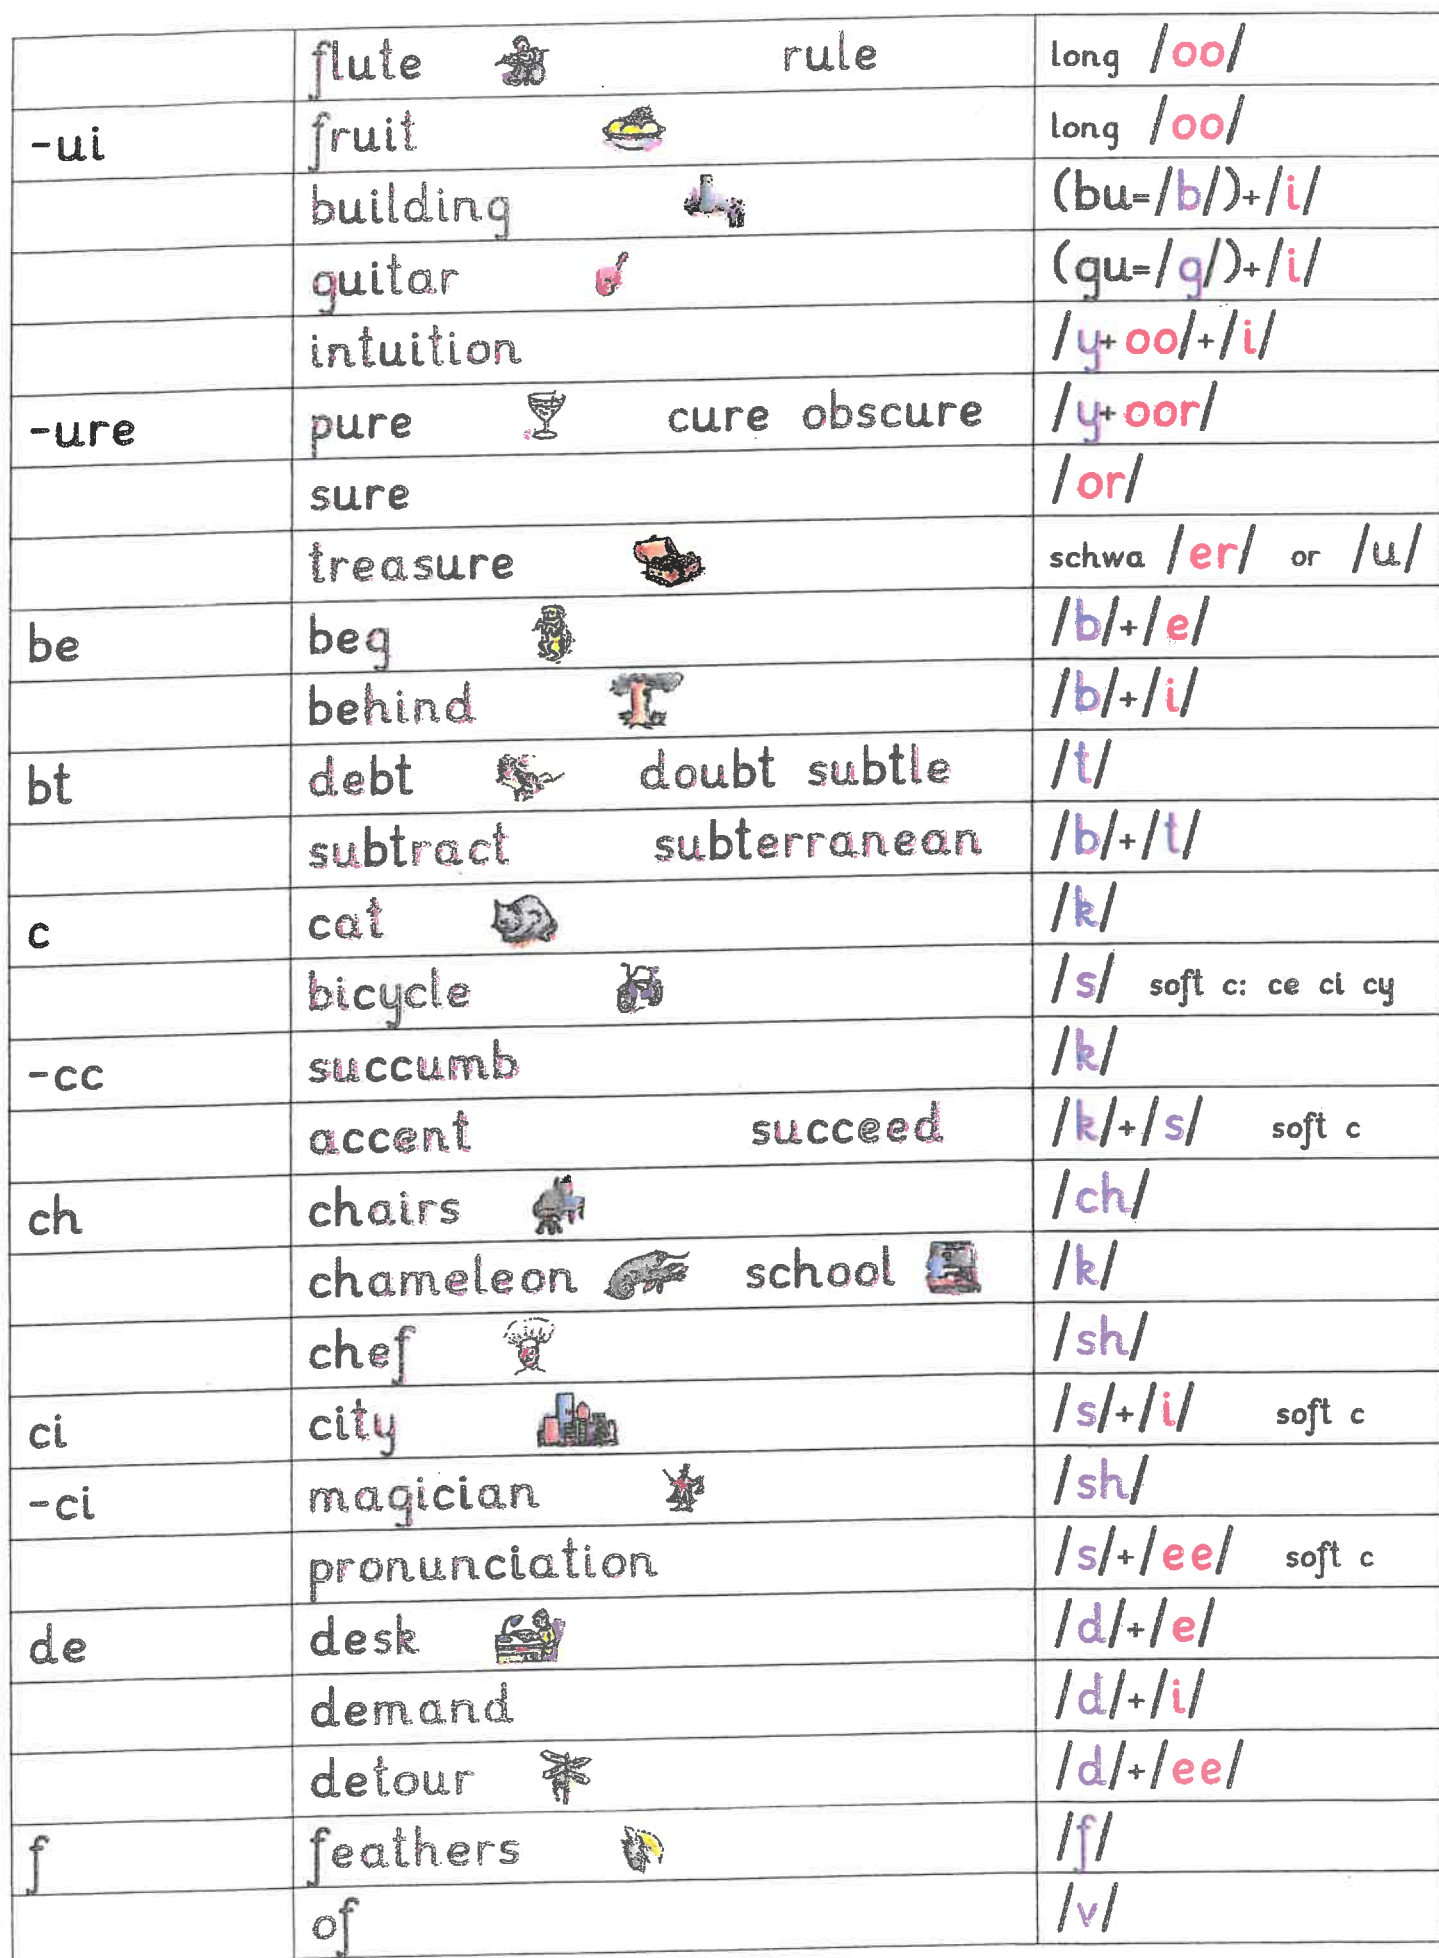 flute rule long /oo/
-ui fruit long /oo/
building (bu=/b/)+/i/
guitar (gu=/g/)+/i/
intuition /y+oo/+/i/
-ure pure cure obscure /y+oor/
sure /or/
treasure schwa /er/ or /u/
be beg /b/+/e/
behind /b/+/i/
bt debt doubt subtle /t/
subtract subterranean /b/+/t/
c cat /k/
bicycle /s/ soft c: ce ci cy
-cc succumb /k/
accent succeed /k/+/s/ soft c
ch chairs /ch/
chameleon school /k/
chef /sh/
ci city /s/+/i/ soft c
-ci magician /sh/
pronunciation /s/+/ee/ soft c
de desk /d/+/e/
demand /d/+/i/
detour /d/+/ee/
f feathers /f/
of /v/